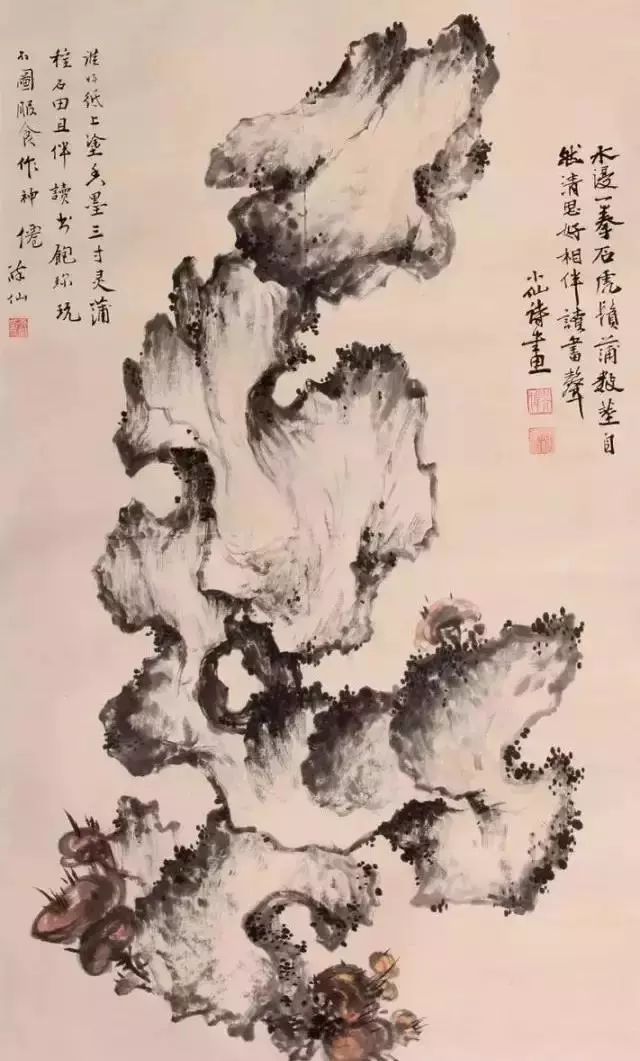 水浸一拳石虎鬚蒲數莖自
然清思好相伴讀書聲
小仙詩畫
誰紙上塗墨三寸灵蒲
種石田且伴讀书飽玩
不圖服食作神僊 仙